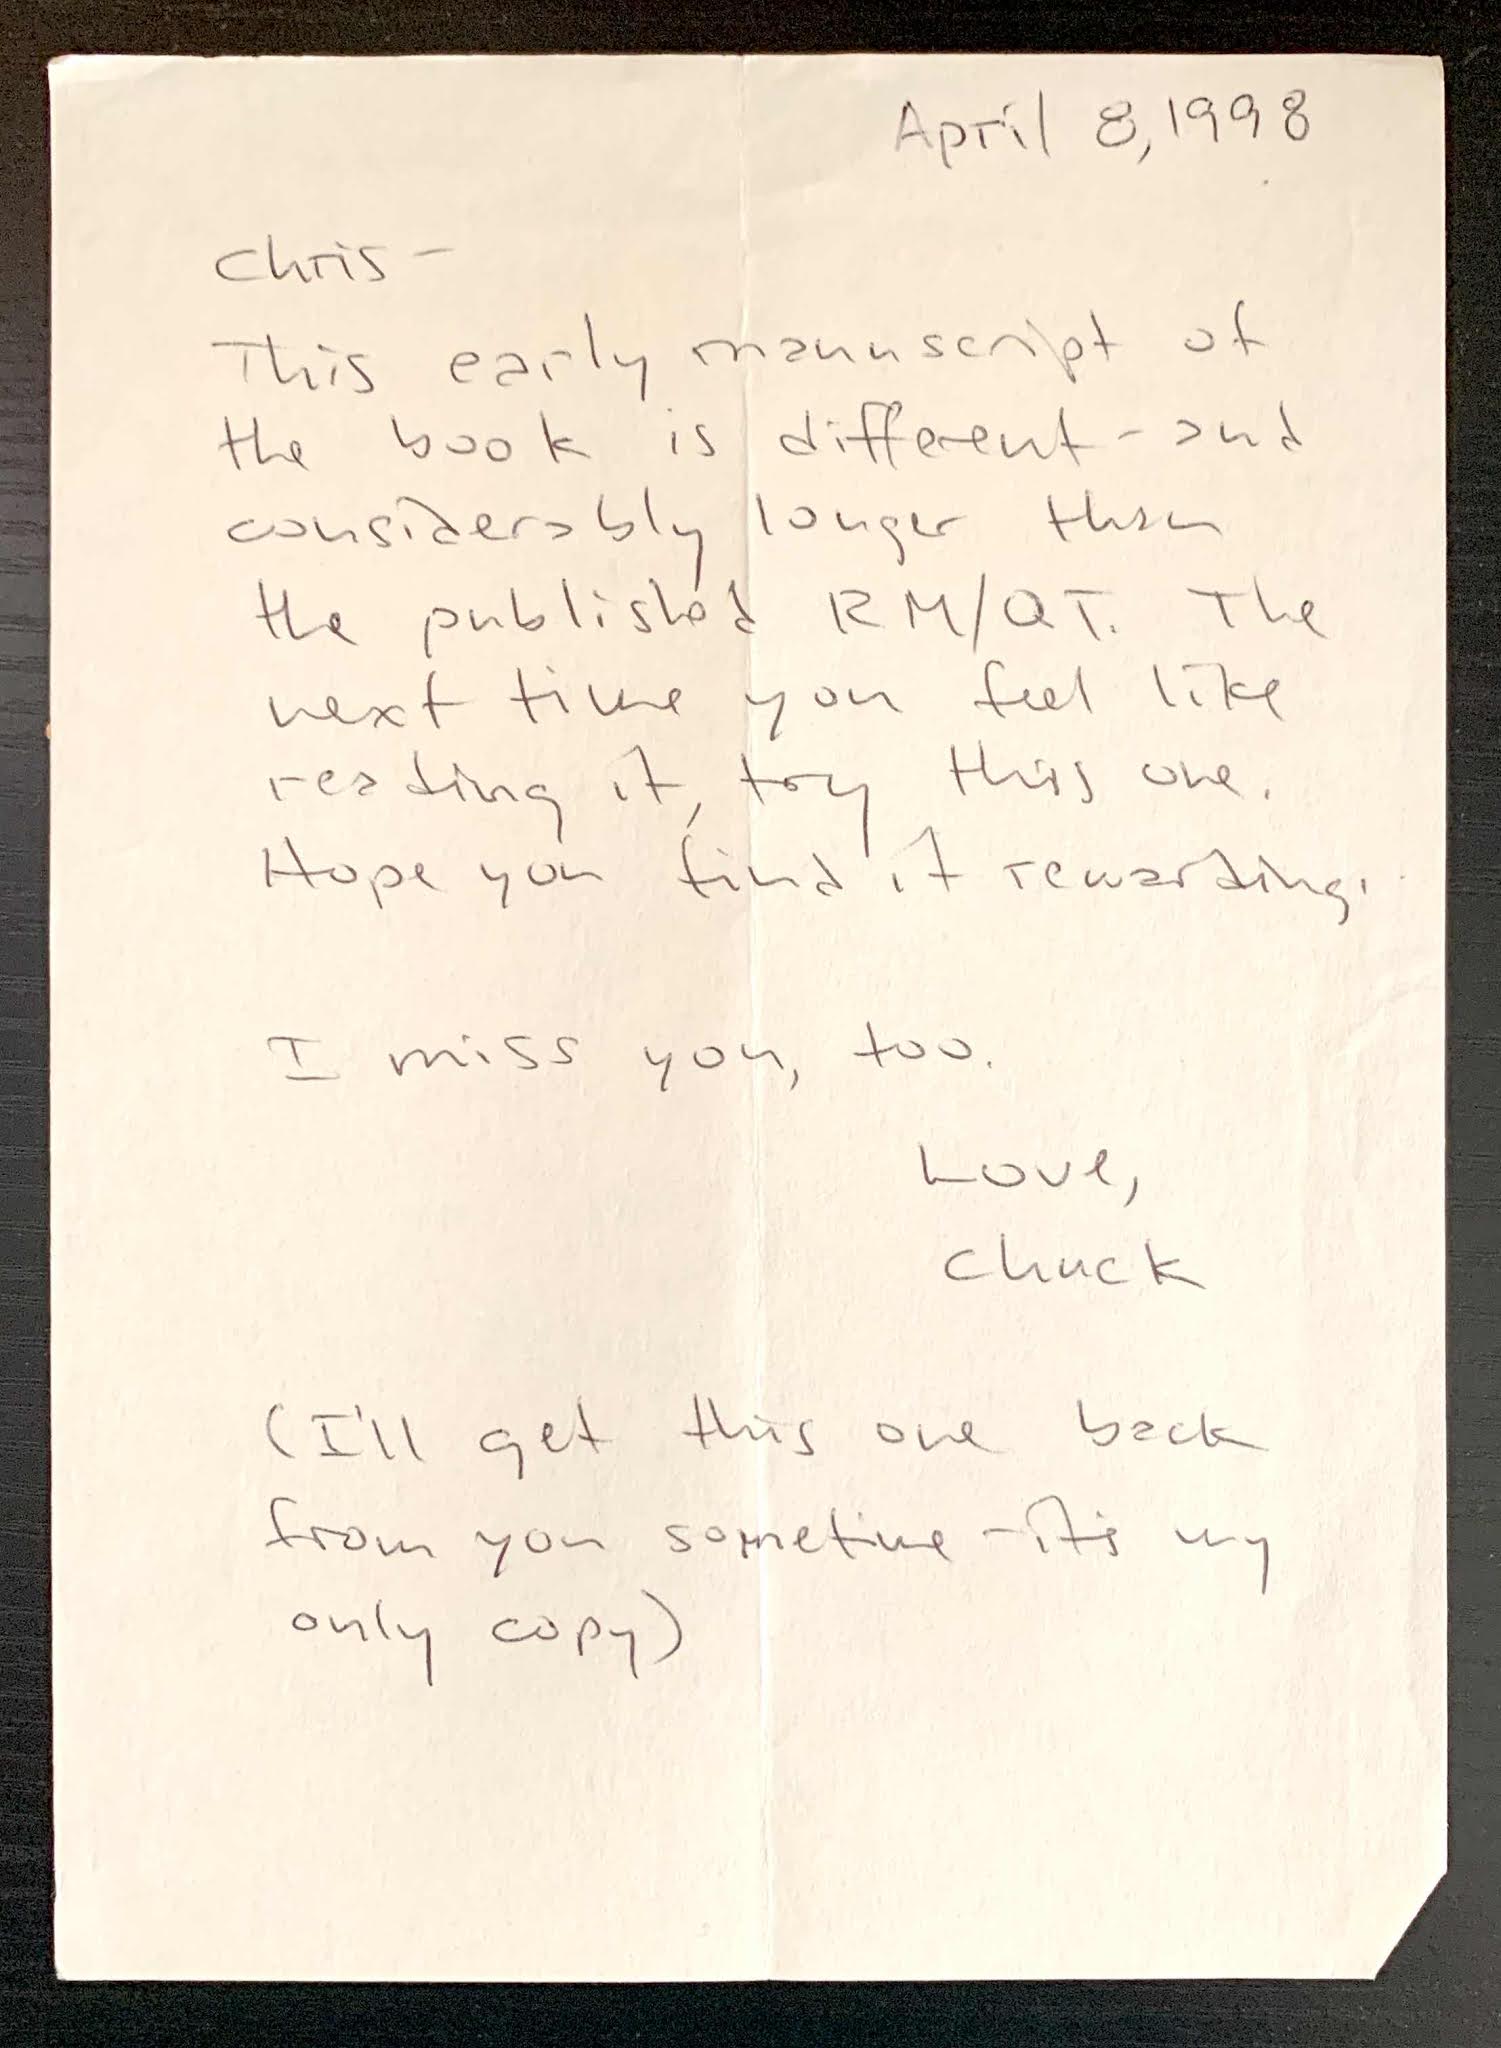 April 8, 1998
Chris -
This early manuscript of
the book is different - and
considerably longer than
the published RM/QT. The
next time you feel like
reading it, try this one.
Hope you find it rewarding.
I miss you, too.
Love,
Chuck
(I'll get this one back
from you sometime - it's my
only copy)